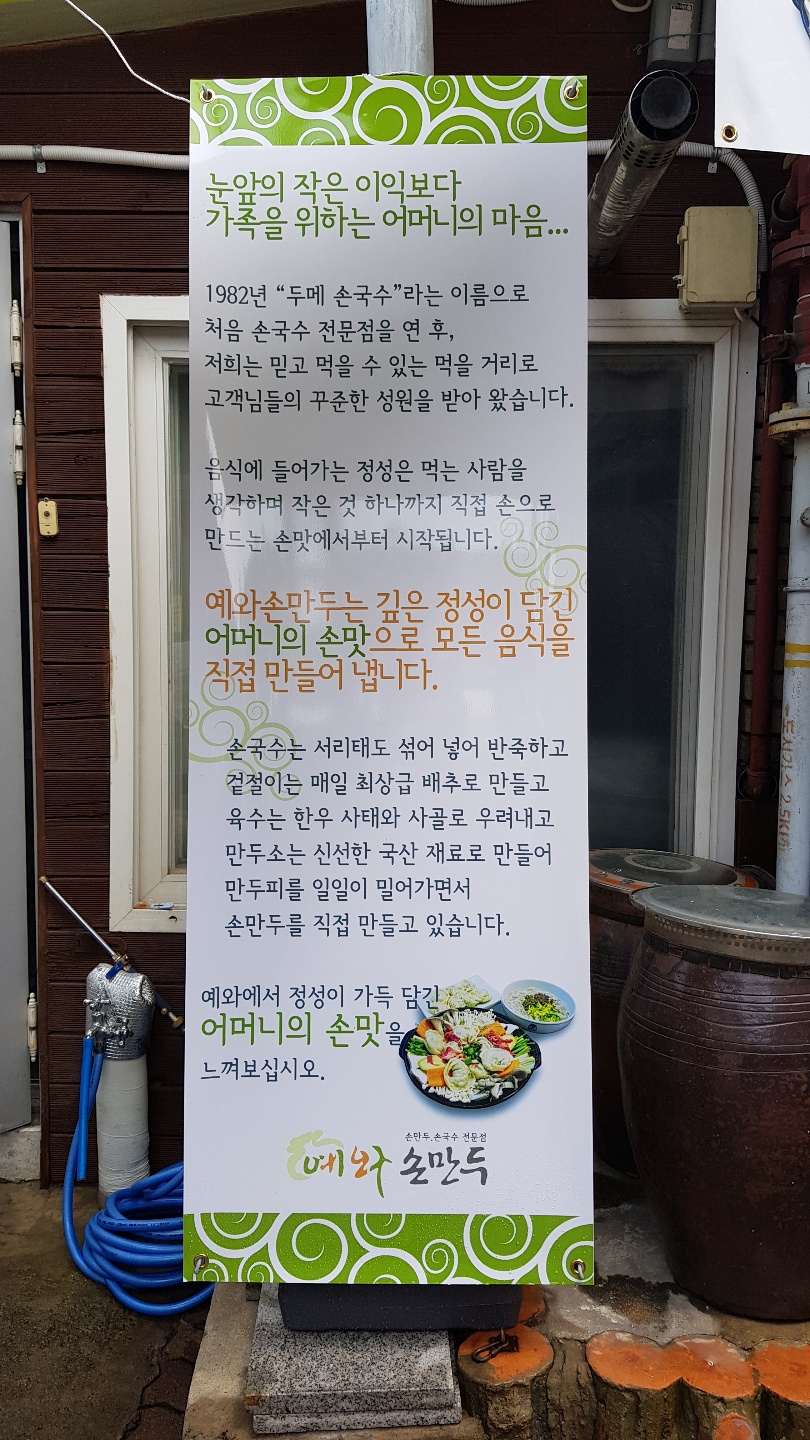 눈앞의 작은 이익보다
가족을 위하는 어머니의 마음...
1982년 “두메 손국수”라는 이름으로
처음 손국수 전문점을 연 후,
저희는 믿고 먹을 수 있는 먹을 거리로
고객님들의 꾸준한 성원을 받아 왔습니다.
음식에 들어가는 정성은 먹는 사람을
생각하며 작은 것 하나까지 직접 손으로
만드는 손맛에서부터 시작됩니다.
예와손만두는 깊은 정성이 담긴
어머니의 손맛으로 모든 음식을
직접 만들어 냅니다.
손국수는 서리태도 섞어 넣어 반죽하고
겉절이는 매일 최상급 배추로 만들고
육수는 한우 사태와 사골로 우려내고
만두소는 신선한 국산 재료로 만들어
만두피를 일일이 밀어가면서
손만두를 직접 만들고 있습니다.
예와에서 정성이 가득 담긴
어머니의 손맛을
느껴보십시오.
손만두.손국수 전문점
예와 손만두
도시가스 2.5KPa